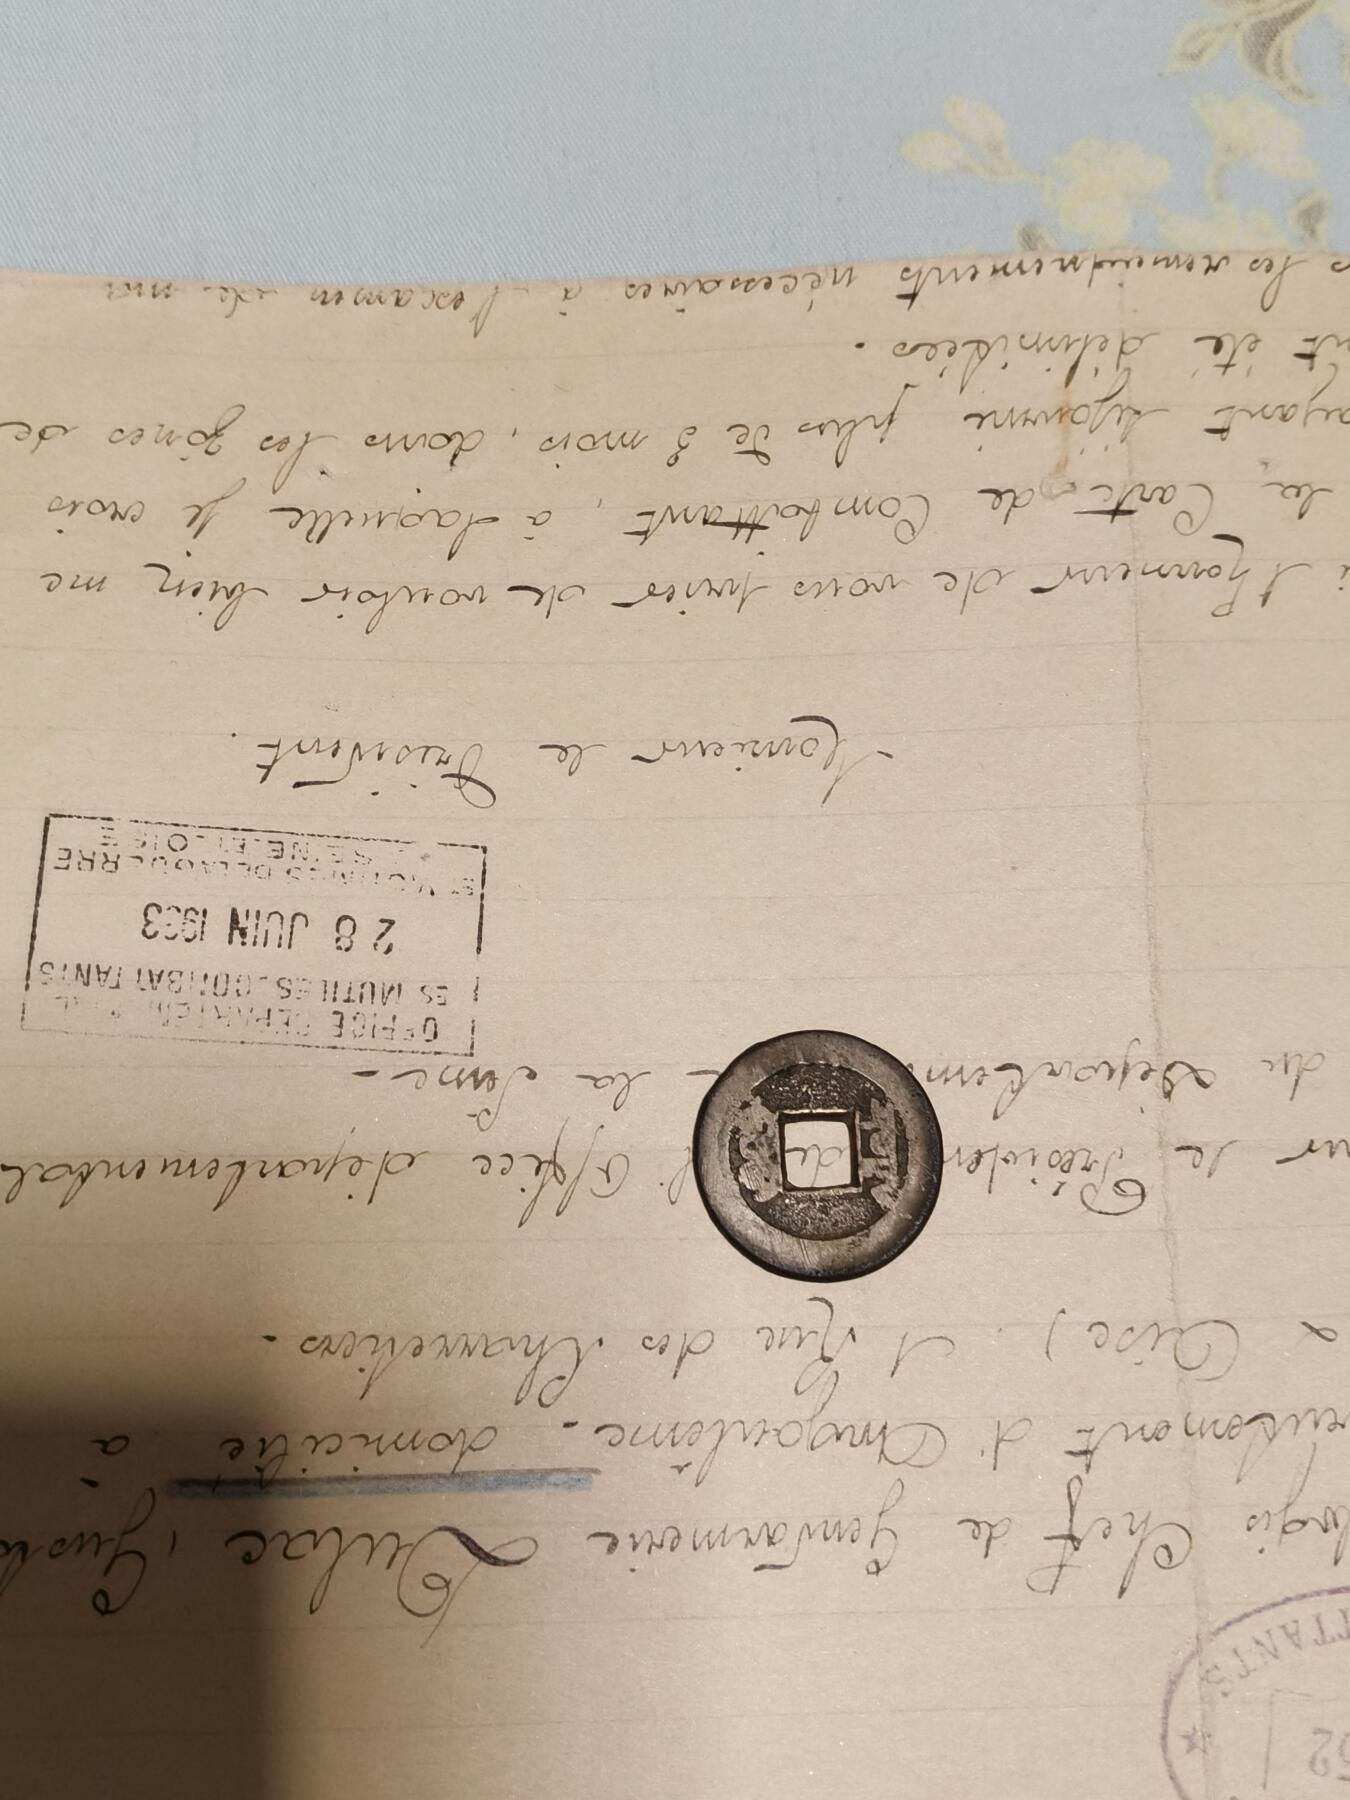 TTANTS
32
logis Chef de Gendarmerie Dulac, Gust
d'Angoulême - domicilié à
Oise). 1 Rue des Charretiers.
le Présiden de l'Office départemental
du Départem la Seine -
OFFICE DEPARTEM
ES MUTILES. COMBATTANTS
28 JUIN 1933
ET VICTIMES DE LA GUERRE
SEINE-ET-OISE
Monsieur le Président.
l'honneur de vous prier de vouloir bien me
la Carte de Combattant, à laquelle je crois
ayant séjourné plus de 3 mois, dans les zones de
nt été délimitées.
les renseignements nécessaires à l'examen de ma